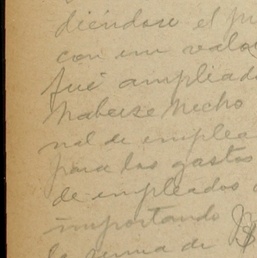 diéndose el pr
con un valor
fué ampliado
haberse hecho
nal de emplea
para los gastos
de empleados
importando
la suma de